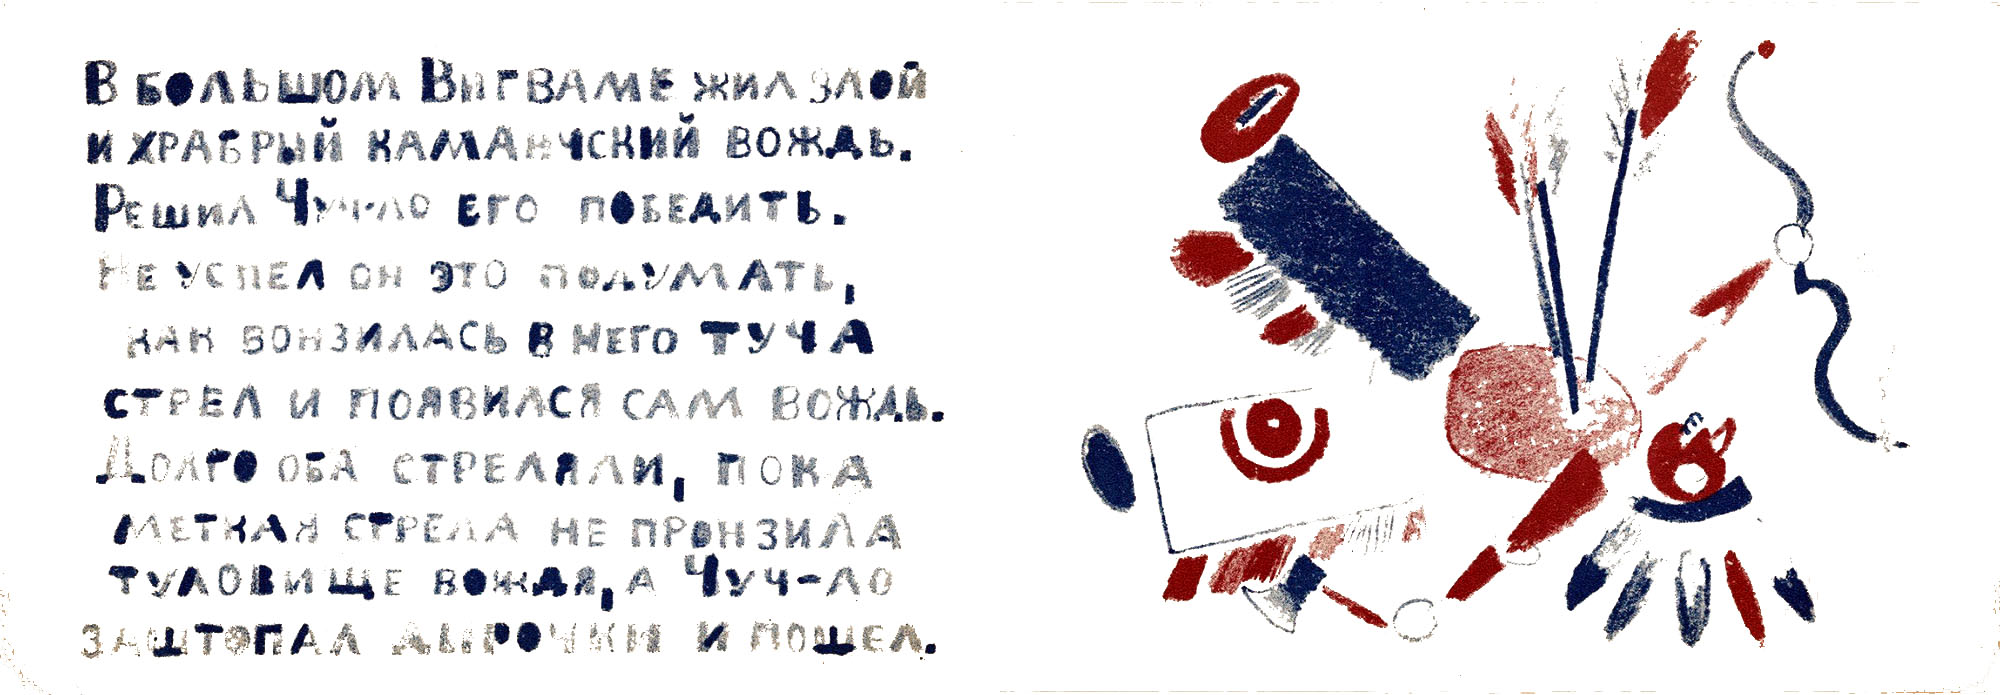 В большом Вигваме жил злой
и храбрый каманчский вождь.
Решил Чуч-ло его победить.
Не успел он это подумать,
как вонзилась в него туча
стрел и появился сам вождь.
Долго оба стреляли, пока
меткая стрела не пронзила
туловище вождя, а Чуч-ло
заштопал дырочки и пошел.